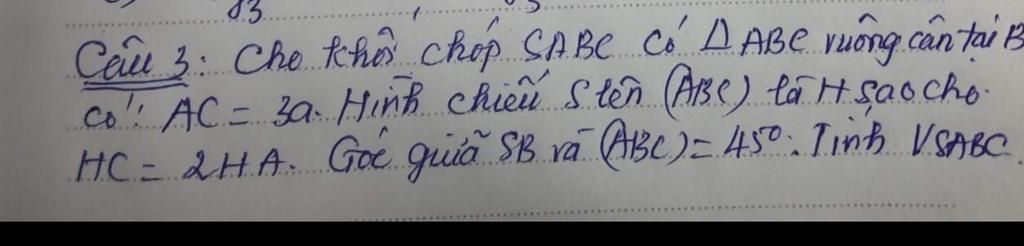 Câu 3: Cho khối chóp SABC có ΔABC vuông cân tại B
có: AC = 3a. Hình chiếu S lên (ABC) là H sao cho
HC = 2HA. Góc giữa SB và (ABC) = 45°. Tính VSABC.